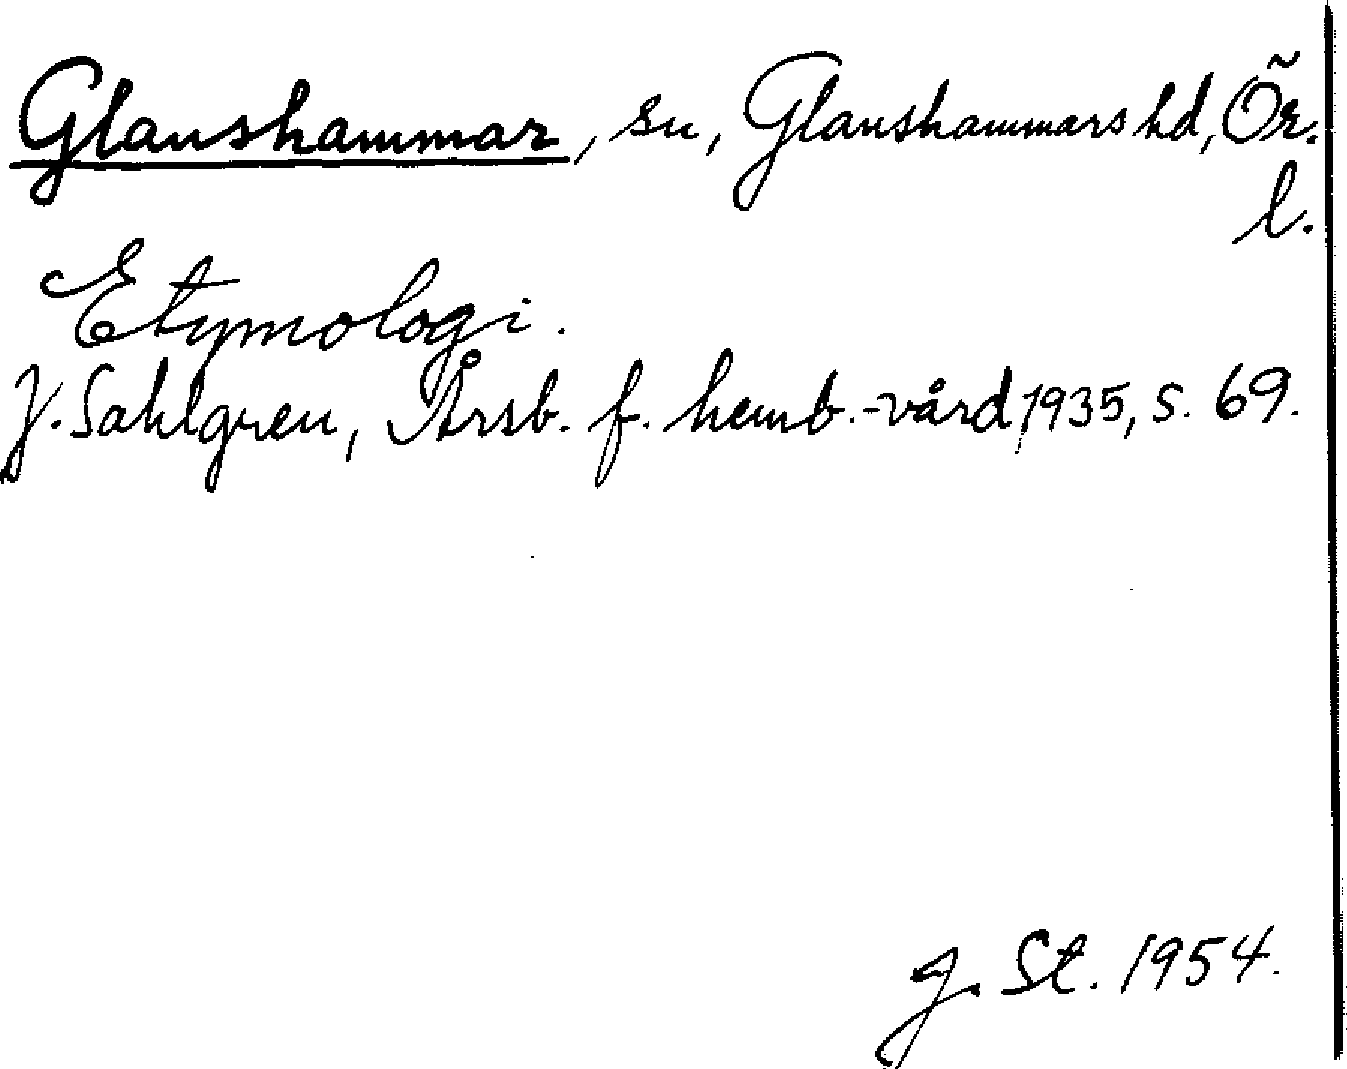 Glanshammar, sn, Glanshammars hd, Ör.
l.
Etymologi.
J. Sahlgren, Årsb. f. hemb.-vård, 1935, s. 69.
J. St. 1954.